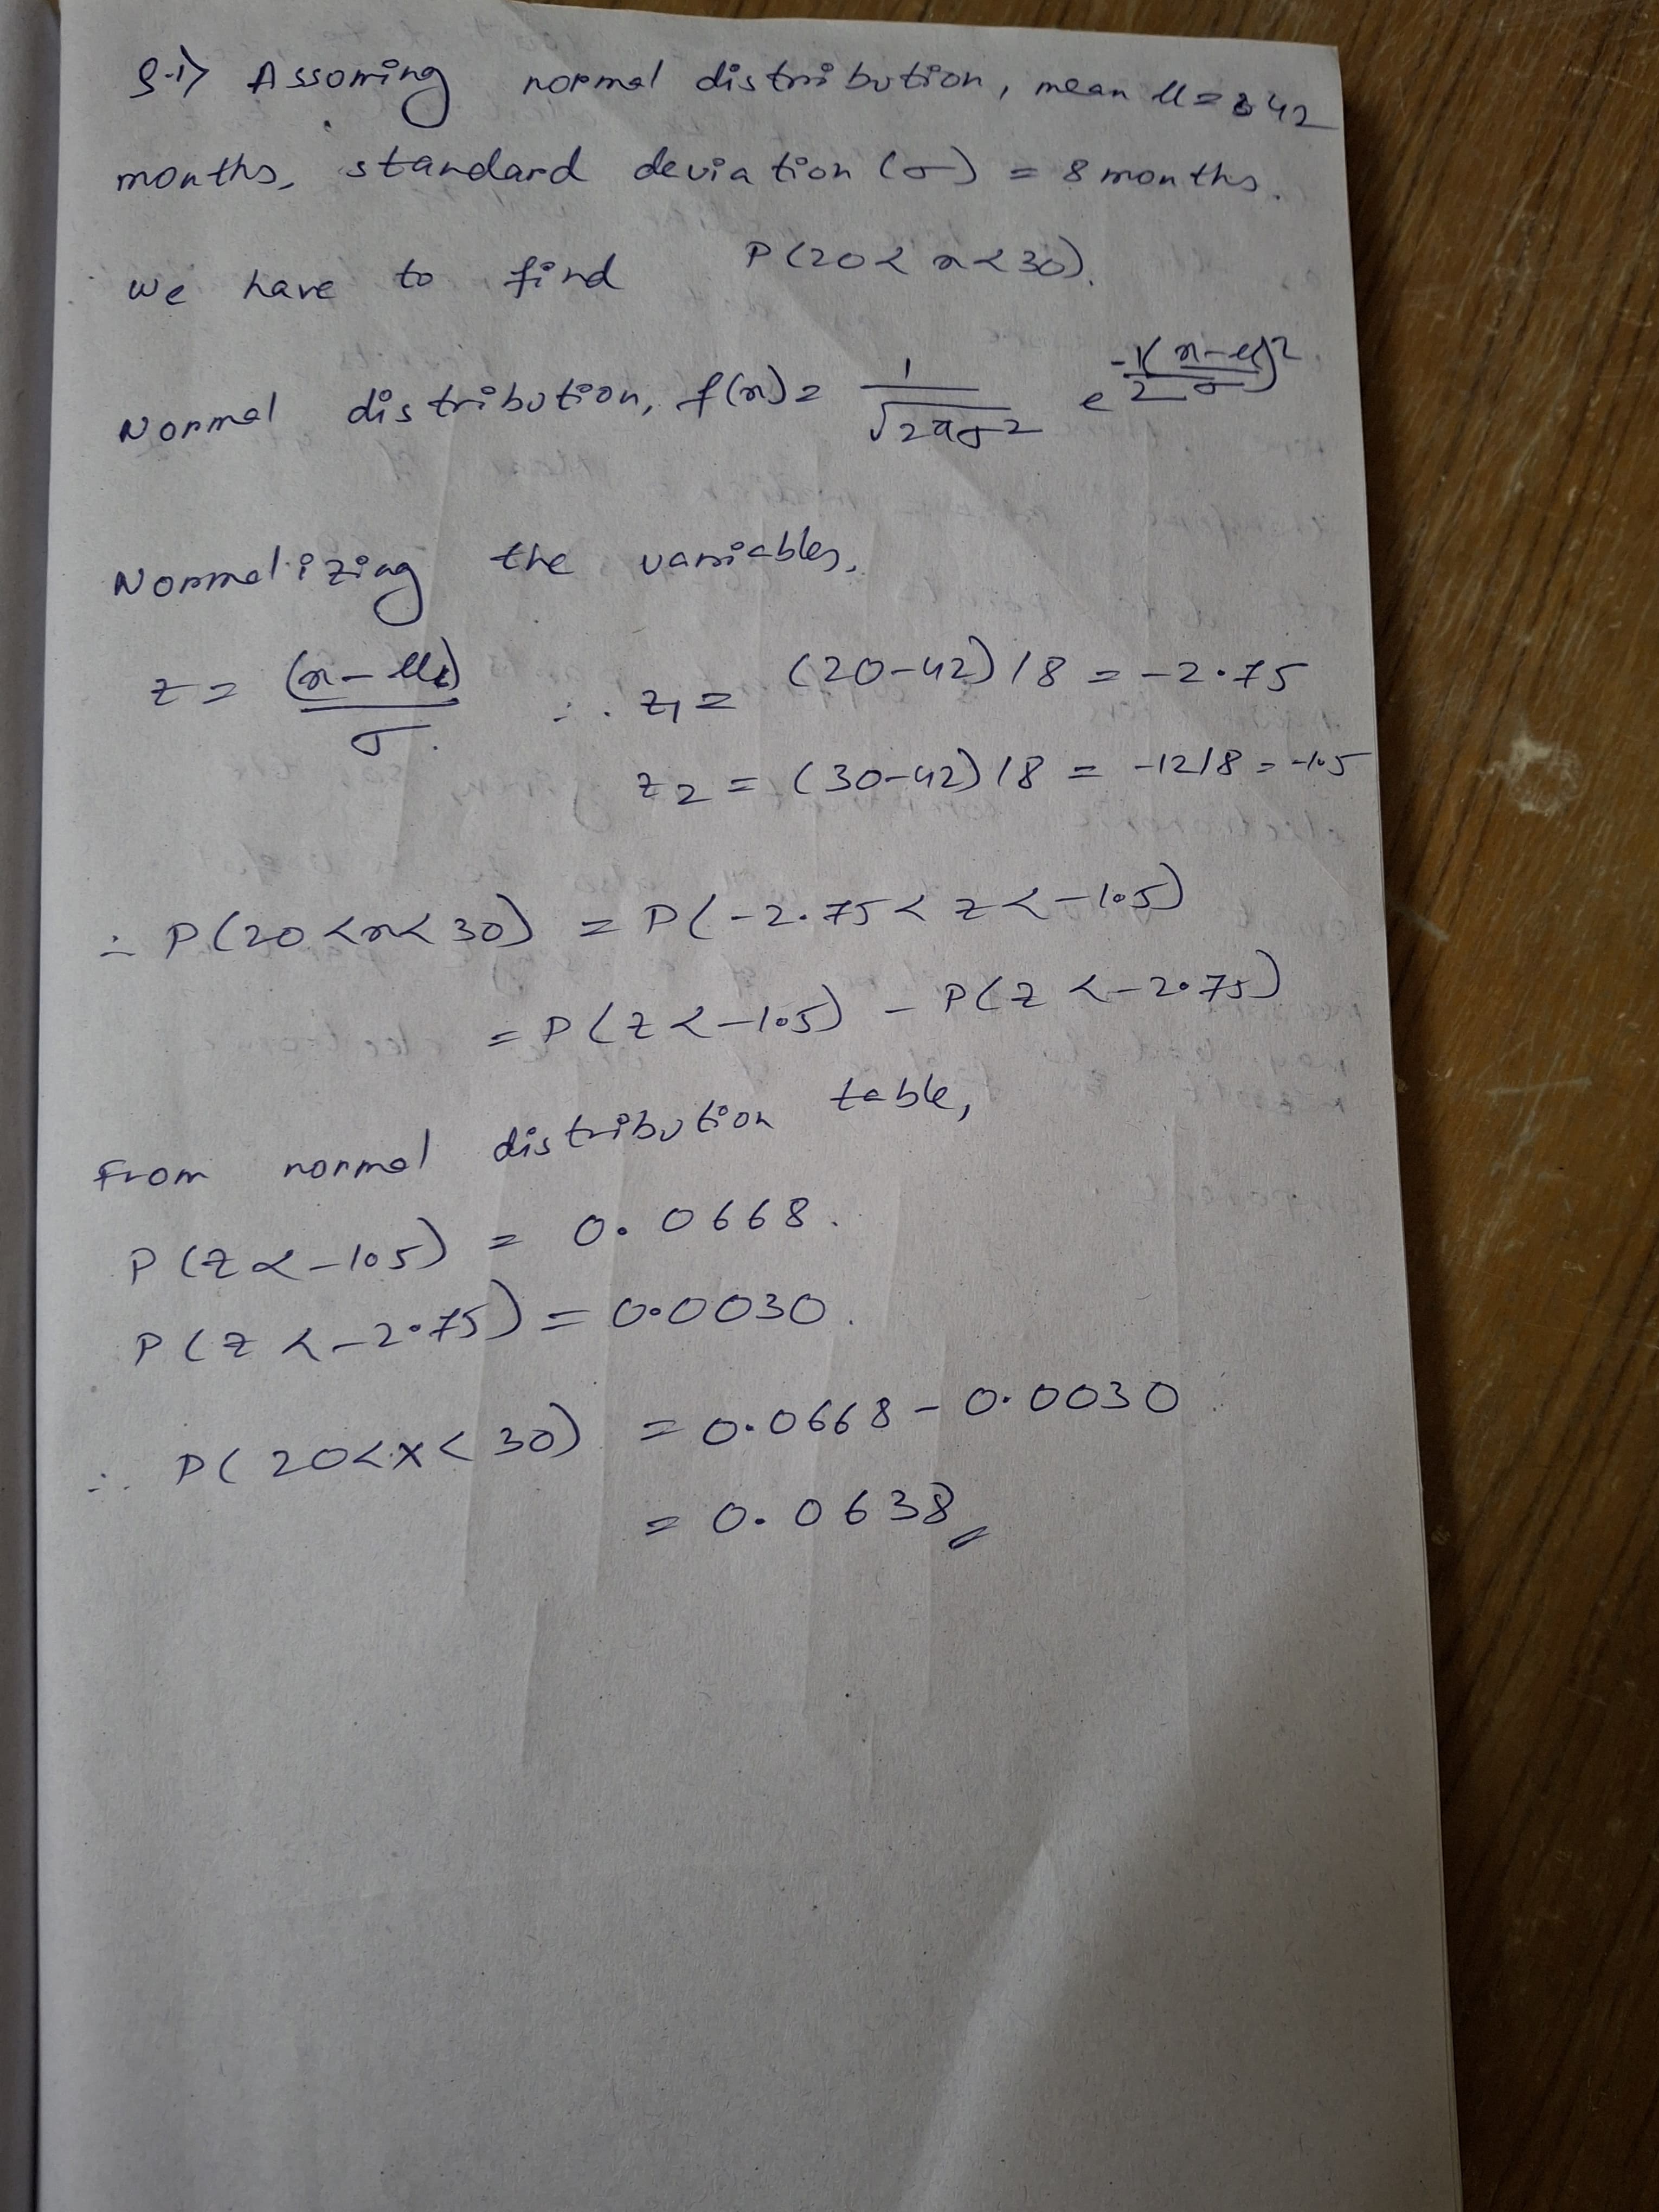 Q.1) Assoming normal distribution, mean μ = 42
months, standard deviation (σ) = 8 months.
We have to find P(20 < x < 30).
Normal distribution, f(x) = 1/√2πσ² e^-1/2(x-μ/σ)²
Normalizing the variables,
z = (x - μ)/σ. ∴ z1 = (20-42)/8 = -2.75
z2 = (30-42)/8 = -12/8 = -1.5
∴ P(20 < x < 30) = P(-2.75 < z < -1.5)
= P(z < -1.5) - P(z < -2.75)
From normal distribution table,
P(z < -1.5) = 0.0668.
P(z < -2.75) = 0.0030.
∴ P(20 < x < 30) = 0.0668 - 0.0030
= 0.0638